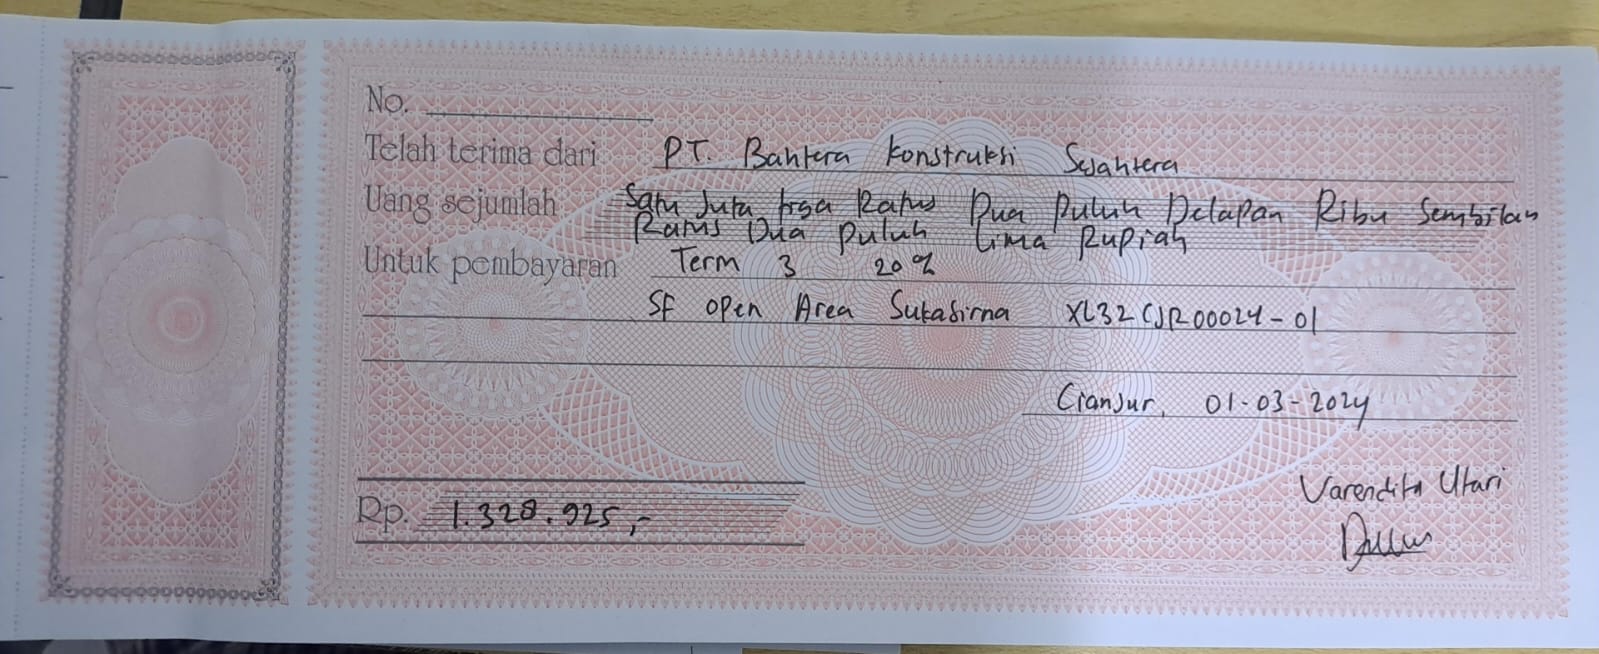 No.
Telah terima dari PT. Bahtera Konstruksi Sejahtera
Uang sejumlah Satu Juta tiga Ratus Dua Puluh Delapan Ribu Sembilan
Ratus Dua Puluh Lima Rupiah
Untuk pembayaran Term 3 20%
SF Open Area Sukasirna XL32CJR00024-01
Cianjur, 01-03-2024
Varendita Utari
Rp. 1.328.925,-